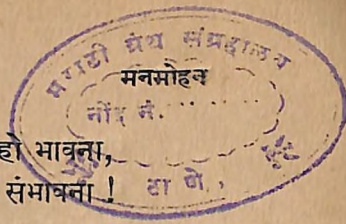 मराठी ग्रंथ संग्रहालय
मनमोहन
नोंद नं. . . . . . . .
हो भावना,
संभावना !
ठाणे.